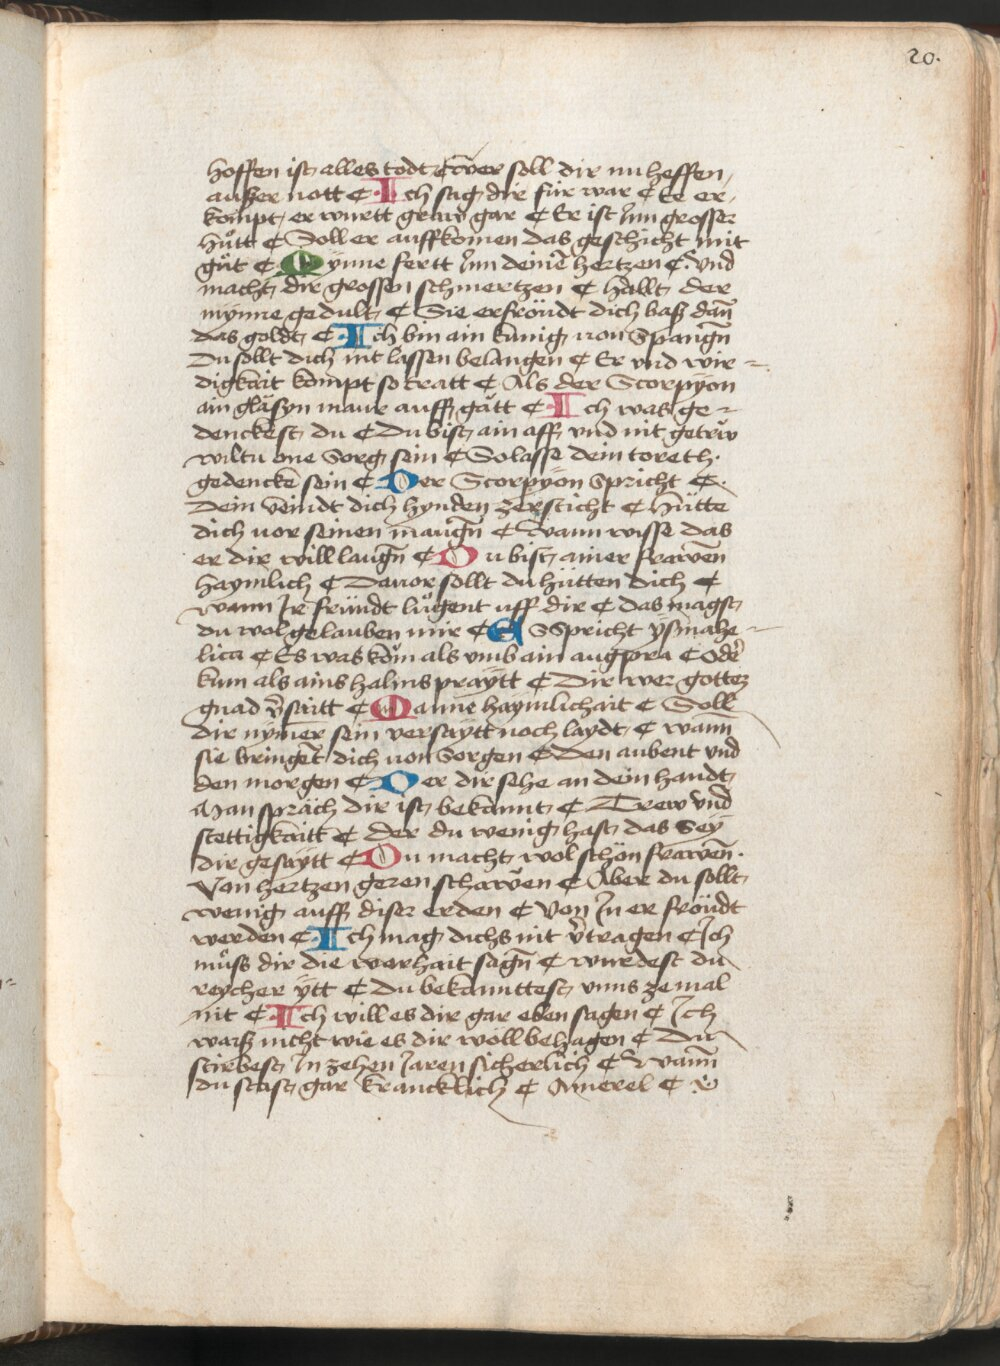 20.
hoffen ist alles todt ¢ wer soll dir nu helffen
ausßer nott ¢ Ich sag dir für war ¢ Ee er
kompt er wurtt graw gar ¢ Er ist Inn grosser
hůtt ¢ Soll er auffkomen das geschicht mit
gůt ¢ Mynne fertt Inn deinē hertzen ¢ Und
macht dir grossen schmertzen ¢ Hallt der
mynne gedult ¢ Sie erfröudt dich baß dañ
das goldt ¢ Ich bin ain künig von Spangñ
Du sollt dich nit lassen belangen ¢ Er vnd wir
digkait kompt so tratt ¢ Als der Scorpyon
ain gläsyn maur auff gätt ¢ Ich was ge
denckest du ¢ Du bist ain aff vnd nit getrüw
wiltu one Sorg sein ¢ So lasse dein toreth
gedencke sein ¢ Der Scorpyon Spricht ¢
Dein veindt dich hynden zersticht ¢ Hütte
dich vor seinen maugñ ¢ Wann wisse das
er dir will laugñ ¢ Du bist ainer frawen
haymlich ¢ Dauor sollt du hütten dich ¢
wann Ir fründt lůgent uff dir ¢ das magst
du wol gelauben mir ¢ Es Spricht ysmahe
lica ¢ Es was kom als vmb ain augpra ¢ Oder
kum als ains halms praytt ¢ Dir wer gottez
gnad v̄saitt ¢ Manne haymlichait ¢ Soll
dir nymer sein versaytt noch laydt ¢ wann
sie bringet dich von Sorgen ¢ Den aubent vnd
den morgen ¢ Der dir sehe an dein handt
Man spräch dir ist bekannt ¢ Trew vnd
stettigkaitt ¢ der du wenig hast das Sey
dir gesaytt ¢ Du macht wol schön frawen
Von hertzen geren schawen ¢ Aber du sollt
wenig auff diser erden ¢ Von In er fröudt
werden ¢ Ich mag dichs nit v̄tragen ¢ Ich
můss dir die warhait sagñ ¢ wurdest du
reycher ytt ¢ Du bekanntest vnns ze mal
nit ¢ Ich will es dir gar eben sagen ¢ Ich
waiß nicht wie es dir woll behagen ¢ Du
stirbest In zehen Jaren sicherlich ¢ Wann
du stast gar kräncklich ¢ Amerel ¢